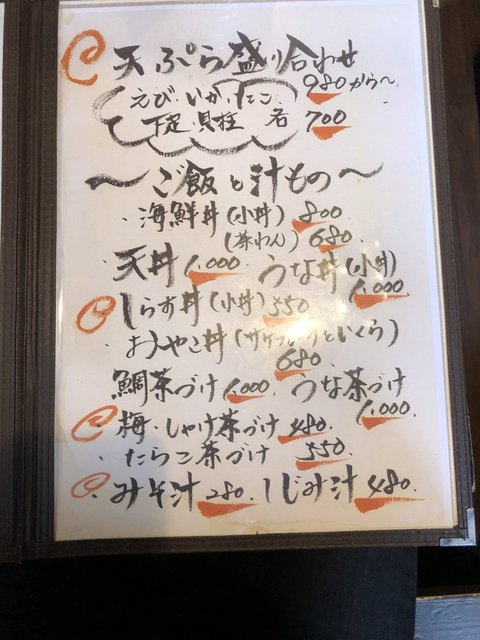 天ぷら盛り合わせ
980から〜
えび、いか、たこ
貝柱 各 700
〜ご飯と汁もの〜
・海鮮丼(小丼) 800
(茶わん) 680
・天丼 1,000 うな丼(小丼)
1,000
しらす丼(小丼) 550
・おやこ丼(サケフレークといくら)
680
鯛茶づけ 1,000 うな茶づけ
1,000
梅・しゃけ茶づけ 480
・たらこ茶づけ 550
・みそ汁 280. しじみ汁 480.